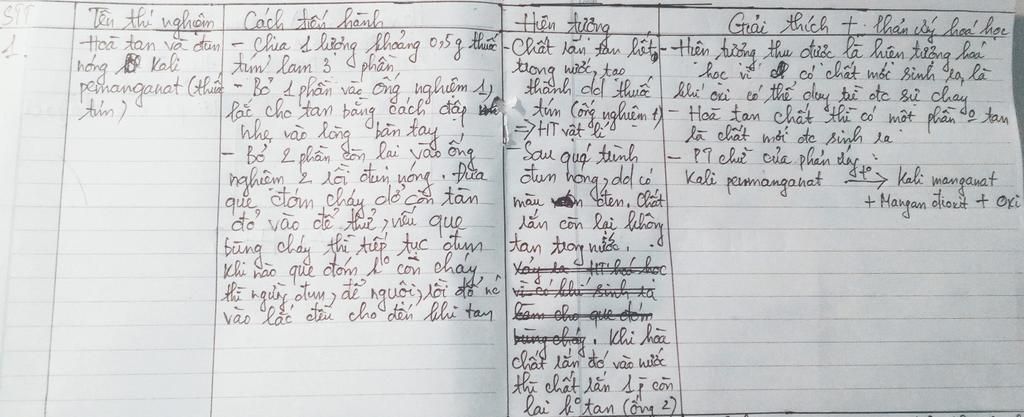 STT
Tên thí nghiệm
Cách tiến hành
Hiện tượng
Giải thích + phản ứng hoá học
1.
Hoà tan và đun
nóng Kali
pemanganat (thuốc
tím)
- Chia 1 lượng khoảng 0,5g thuốc
tím làm 3 phần
- Bỏ 1 phần vào ống nghiệm 1,
lắc cho tan bằng cách đập
nhẹ vào lòng bàn tay
- Bỏ 2 phần còn lại vào ống
nghiệm 2 rồi đun nóng. Đưa
que đóm cháy dở còn tàn
đỏ vào để thử, nếu que
bùng cháy thì tiếp tục đun
Khi nào que đóm ko còn cháy
thì ngừng đun, để nguội, rồi đổ nc
vào lắc đều cho đến khi tan
- Chất rắn tan hết
trong nước, tạo
thành dd thuốc
tím (ống nghiệm 1)
=> HT vật lí
- Sau quá trình
đun nóng, dd có
màu đen. Chất
rắn còn lại không
tan trong nước.
Xảy ra HT hoá học
vì có khí sinh ra
làm cho que đóm
bùng cháy. Khi hòa
chất rắn đó vào nước
thì chất rắn 1 p còn
lại ko tan (ống 2)
- Hiện tượng thu được là hiện tượng hoá
học vì có chất mới sinh ra, là
khí oxi có thể duy trì đc sự cháy
- Hoà tan chất thì có một phần o tan
là chất mới đc sinh ra
- PT chữ của phản ứng:
Kali pemanganat to→ Kali manganat
+ Mangan đioxit + Oxi